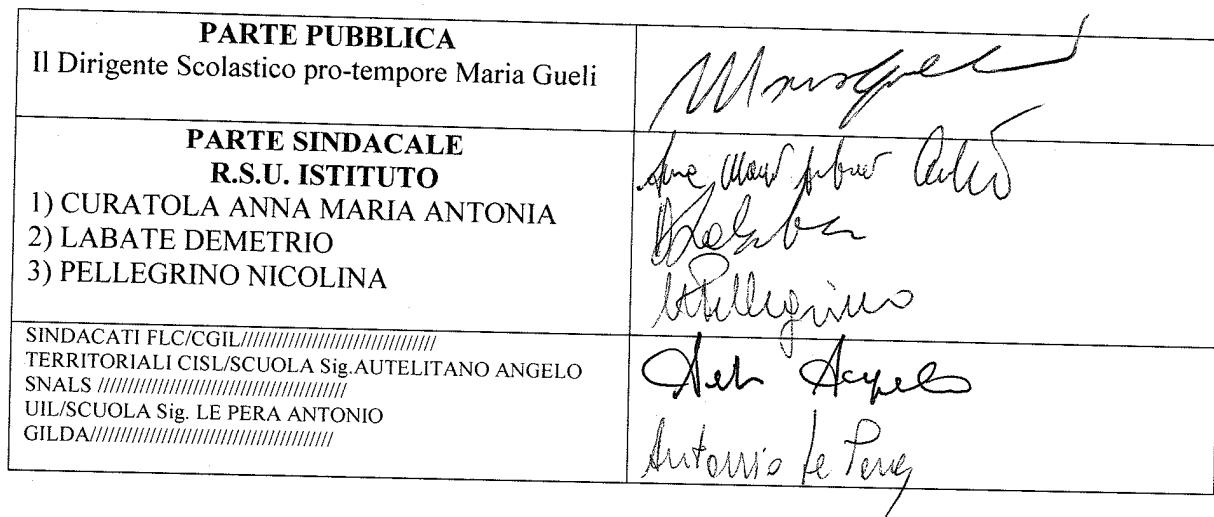 PARTE PUBBLICA
Il Dirigente Scolastico pro-tempore Maria Gueli
PARTE SINDACALE
R.S.U. ISTITUTO
1) CURATOLA ANNA MARIA ANTONIA
2) LABATE DEMETRIO
3) PELLEGRINO NICOLINA
Pellegrino
SINDACATI FLC/CGIL/////////////////////////////////
TERRITORIALI CISL/SCUOLA Sig.AUTELITANO ANGELO
SNALS //////////////////////////////////////////
UIL/SCUOLA Sig. LE PERA ANTONIO
GILDA/////////////////////////////////////////
Antonio Le Pera